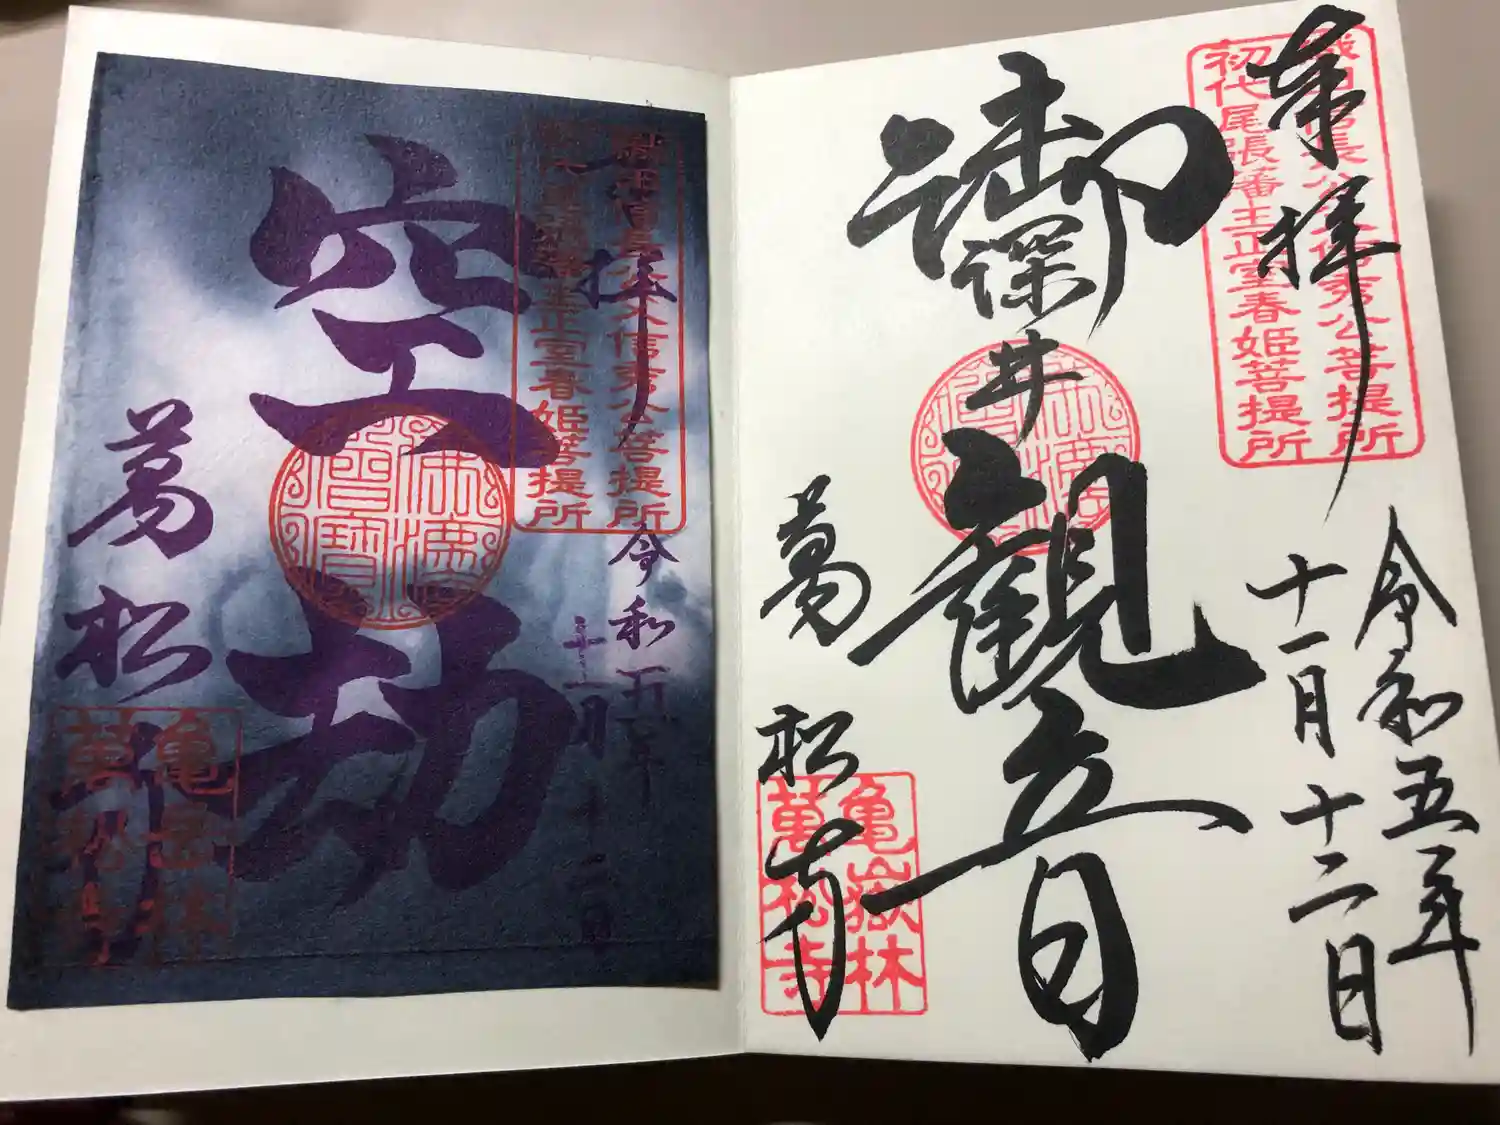 奉拝
織田信長公父信秀公菩提所
初代尾張藩主正室春姫菩提所
令和五年
十一月十二日
御深井観音
佛法僧寶
萬松寺
亀嶽林
萬松寺
拝
織田信長公父信秀公菩提所
初代尾張藩主正室春姫菩提所
令和五年
十一月十二日
空劫
佛法僧寶
萬松寺
亀嶽林
萬松寺